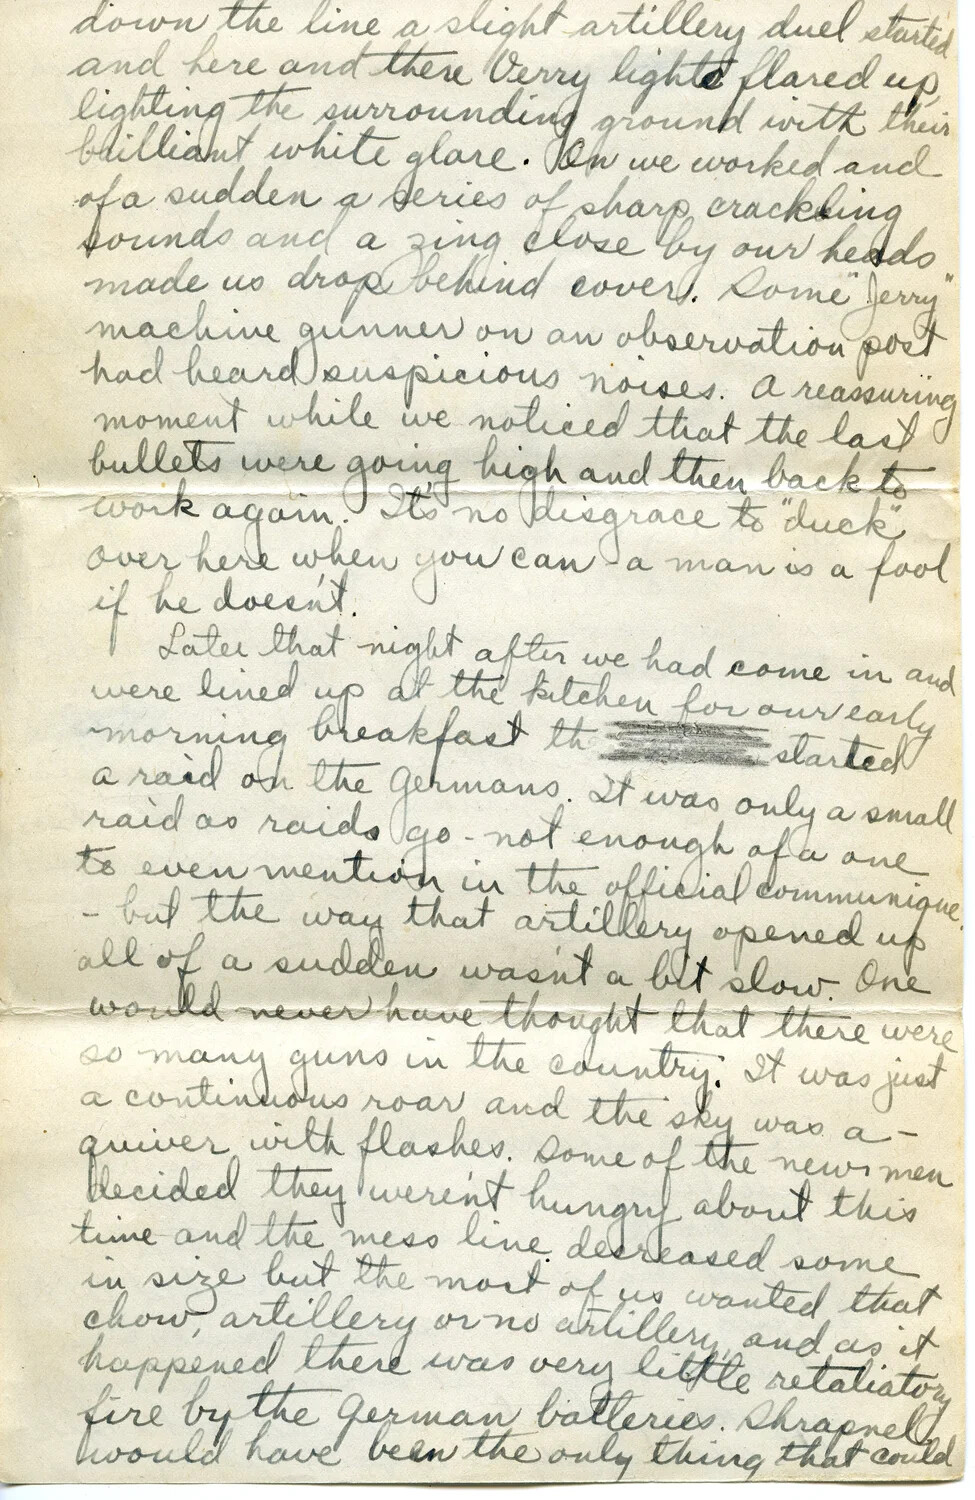 down the line a slight artillery duel started
and here and there Verry lights flared up,
lighting the surrounding ground with their
brilliant white glare. On we worked and
of a sudden a series of sharp crackling
sounds and a zing close by our heads
made us drop behind cover. Some "Jerry"
machine gunner on an observation post
had heard suspicious noises. A reassuring
moment while we noticed that the last
bullets were going high and then back to
work again. It's no disgrace to "duck"
over here when you can - a man is a fool
if he doesn't.
Later that night after we had come in and
were lined up at the kitchen for our early
morning breakfast th started
a raid on the Germans. It was only a small
raid as raids go - not enough of a one
to even mention in the official communique.
- but the way that artillery opened up
all of a sudden wasn't a bit slow. One
would never have thought that there were
so many guns in the country. It was just
a continuous roar and the sky was a-
quiver with flashes. Some of the new men
decided they weren't hungry about this
time and the mess line decreased some
in size but the most of us wanted that
chow, artillery or no artillery, and as it
happened there was very little retaliatory
fire by the German batteries. Shrapnel
would have been the only thing that could